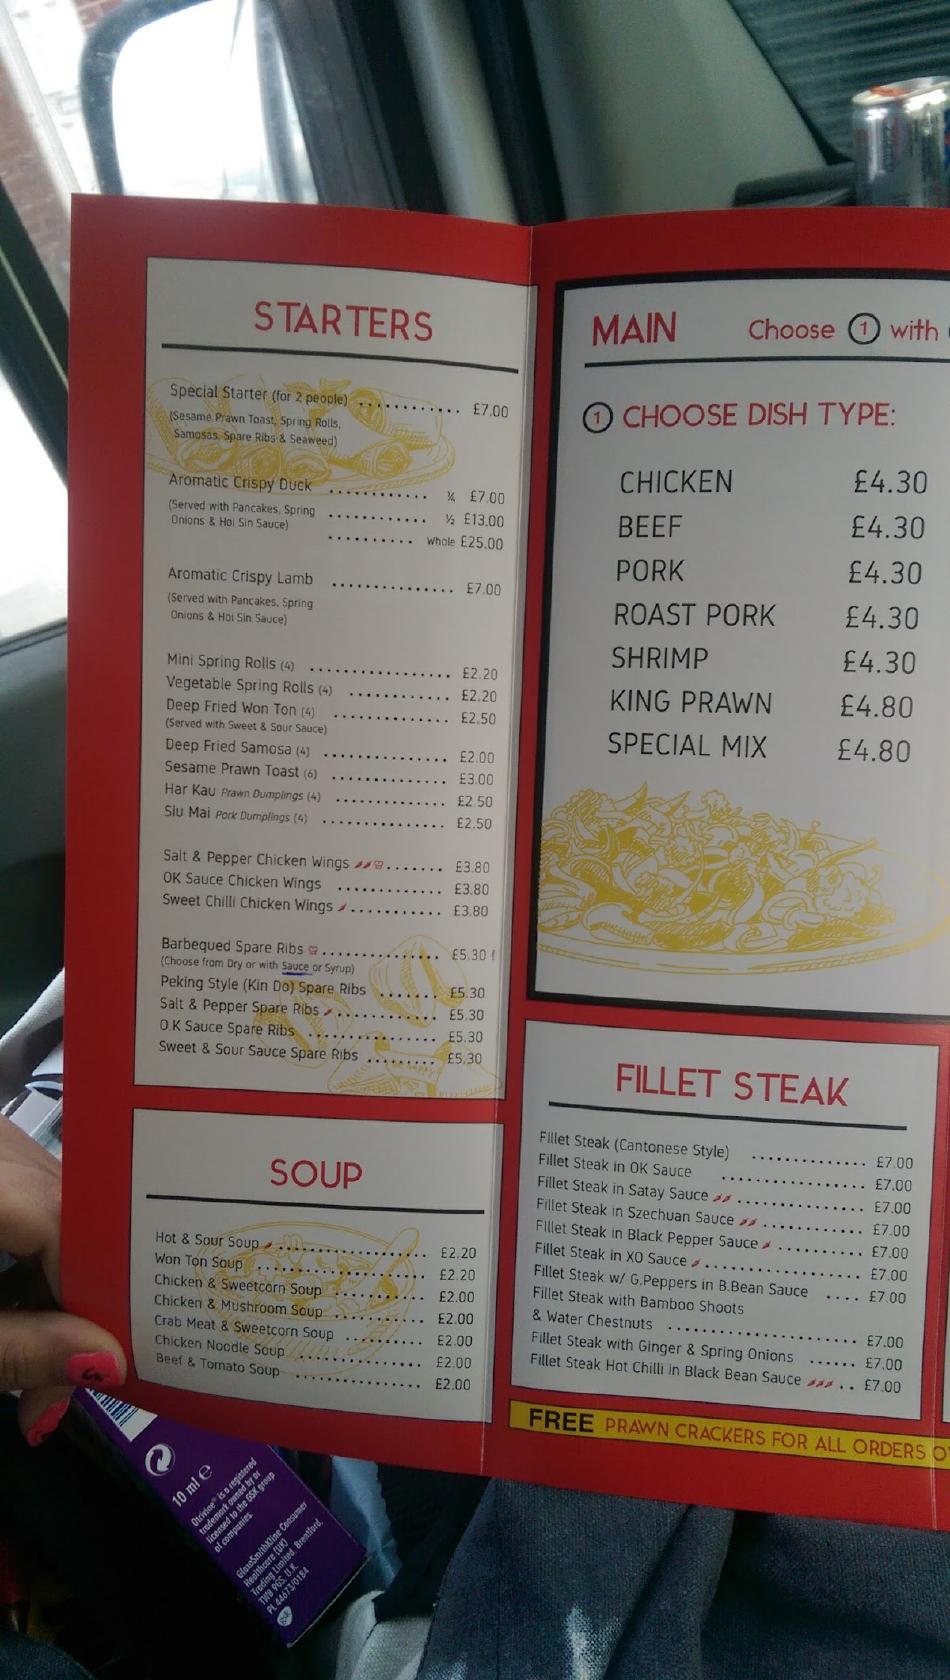 STARTERS
Special Starter (for 2 people) ............ £7.00
(Sesame Prawn Toast, Spring Rolls,
Samosas, Spare Ribs & Seaweed)
Aromatic Crispy Duck ............ ¼ £7.00
(Served with Pancakes, Spring ............ ½ £13.00
Onions & Hoi Sin Sauce)
.......... Whole £25.00
Aromatic Crispy Lamb ............... £7.00
(Served with Pancakes, Spring
Onions & Hoi Sin Sauce)
Mini Spring Rolls (4) ................. £2.20
Vegetable Spring Rolls (4) ............ £2.20
Deep Fried Won Ton (4) .............. £2.50
(Served with Sweet & Sour Sauce)
Deep Fried Samosa (4) ............... £2.00
Sesame Prawn Toast (6) .............. £3.00
Har Kau Prawn Dumplings (4) ............. £2.50
Siu Mai Pork Dumplings (4) ............... £2.50
Salt & Pepper Chicken Wings ....... £3.80
OK Sauce Chicken Wings ............ £3.80
Sweet Chilli Chicken Wings ........... £3.80
Barbequed Spare Ribs ............... £5.30
(Choose from Dry or with Sauce or Syrup)
Peking Style (Kin Do) Spare Ribs ....... £5.30
Salt & Pepper Spare Ribs ............. £5.30
O.K Sauce Spare Ribs ................ £5.30
Sweet & Sour Sauce Spare Ribs ......... £5.30
SOUP
Hot & Sour Soup .................. £2.20
Won Ton Soup ................... £2.20
Chicken & Sweetcorn Soup ........... £2.00
Chicken & Mushroom Soup ............ £2.00
Crab Meat & Sweetcorn Soup .......... £2.00
Chicken Noodle Soup ............... £2.00
Beef & Tomato Soup ................ £2.00
MAIN Choose 1 with
1 CHOOSE DISH TYPE:
CHICKEN £4.30
BEEF £4.30
PORK £4.30
ROAST PORK £4.30
SHRIMP £4.30
KING PRAWN £4.80
SPECIAL MIX £4.80
FILLET STEAK
Fillet Steak (Cantonese Style) ............. £7.00
Fillet Steak in OK Sauce ................ £7.00
Fillet Steak in Satay Sauce .............. £7.00
Fillet Steak in Szechuan Sauce ........... £7.00
Fillet Steak in Black Pepper Sauce ......... £7.00
Fillet Steak in XO Sauce ................ £7.00
Fillet Steak w/ G.Peppers in B.Bean Sauce .... £7.00
Fillet Steak with Bamboo Shoots
& Water Chestnuts ..................... £7.00
Fillet Steak with Ginger & Spring Onions ...... £7.00
Fillet Steak Hot Chilli in Black Bean Sauce .. £7.00
FREE PRAWN CRACKERS FOR ALL ORDERS
10 ml e
Otrivine® is a registered
trademark owned by or
licensed to the GSK group
of companies.
GlaxoSmithKline Consumer
Healthcare (UK)
Trading Limited, Brentford,
TW8 9GS, U.K.
PL 44673/0184
gsk